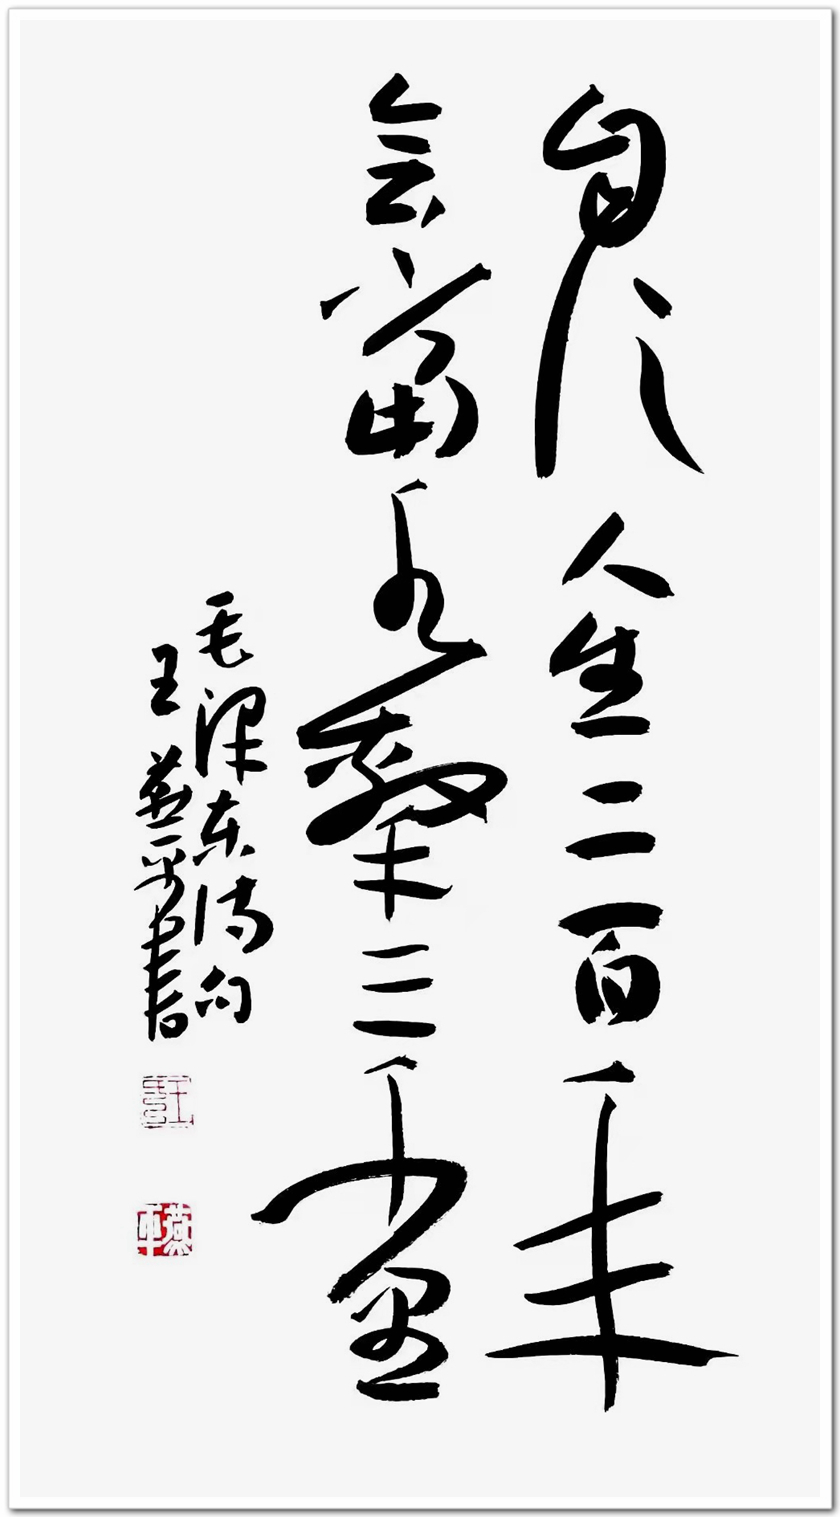 自信人生二百年
会當水擊三千里
毛泽东诗句
王燕平書
燕平